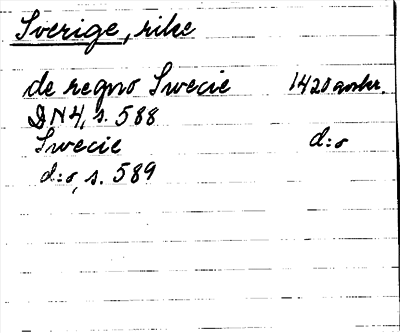 Sverige, rike
de regno Swecie 1420 avskr.
DN 4, s. 588
Swecie d:o
d:o, s. 589